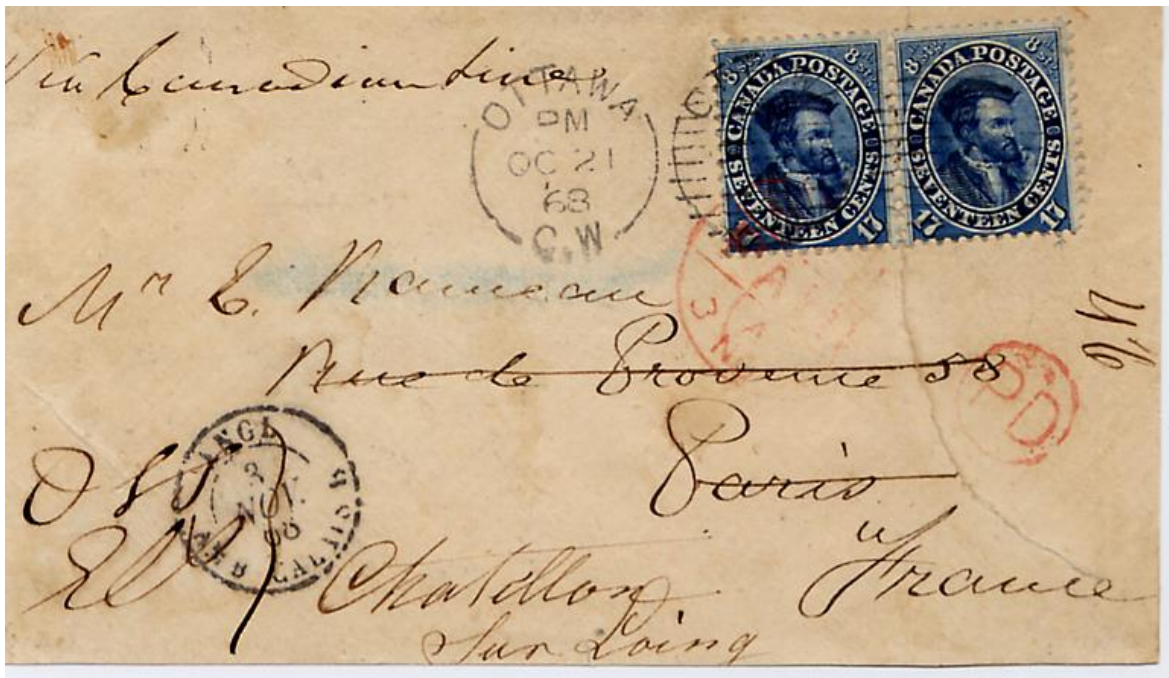 Via Canadian Line
OTTAWA
PM
OC 21
68
C.W
8 D. STG. 8 D. STG.
CANADA POSTAGE
SEVENTEEN CENTS
17 17
8 D. STG. 8 D. STG.
CANADA POSTAGE
SEVENTEEN CENTS
17 17
Mr E. Rameau
Rue de Provence 58
Paris
France
PD
3 N
ANGL
3
NOV.
68
AMB CALAIS
Chatillon
Sur Loing